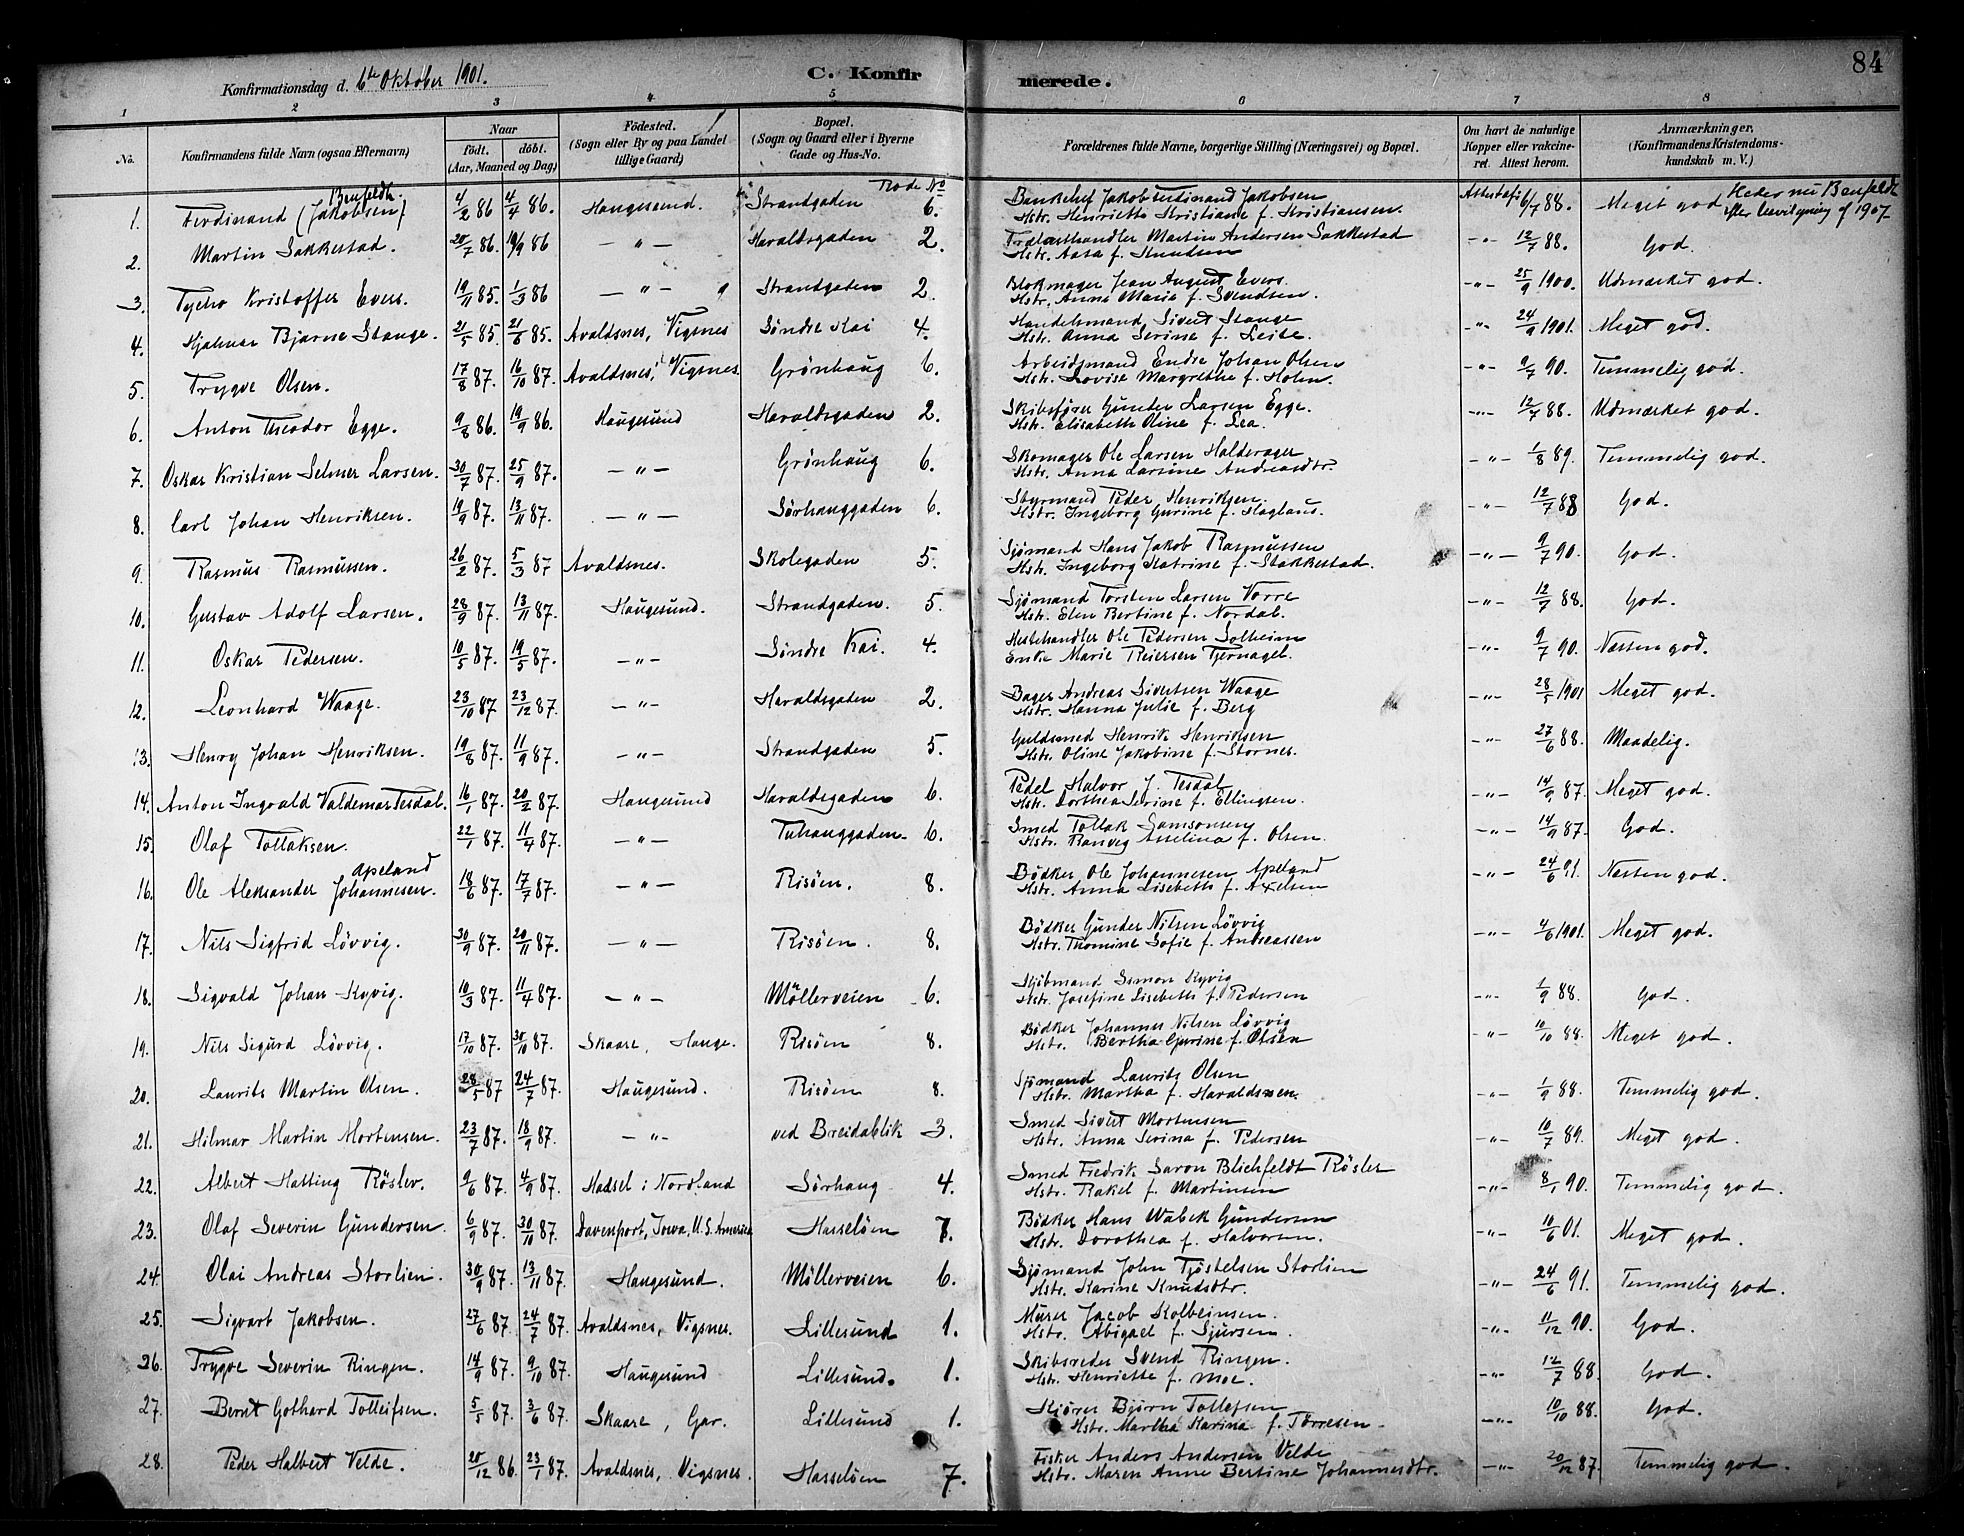 84
Konfirmationsdag d. 6te Oktober 1901. C. Konfirmerede.
1 2 3 4 5 6 7 8
No. Konfirmandens fulde Navn (ogsaa Efternavn) Naar födt. döbt. (Aar, Maaned og Dag) Födested. (Sogn eller By og paa Landet tillige Gaard) Bopæl. (Sogn og Gaard eller i Byerne Gade og Hus-No. Forældrenes fulde Navne, borgerlige Stilling (Næringsvei) og Bopæl. Om havt de naturlige Kopper eller vaccineret. Attest herom. Anmærkninger. (Konfirmandens Kristendomskundskab m. V.)
Rode No
Benfeldt.
1. Ferdinand (Jakobsen) 4/2 86 4/4 86. Haugesund. Strandgaden 6. Bankchef Jakob Ferdinand Jakobsen Attest af 6/7 88. Meget god Heder nu Benfeldt
Hstr. Henriette Kristiane f. Kristiansen. efter bevilgning af 1907
2. Martin Sakkestad. 20/7 86. 19/9 86 — " — Haraldsgaden 2. Trælasthandler Martin Andersen Sakkestad — " — 12/7 88. God.
Hstr. Aasa f. Knudsen
3. Tycho Kristoffer Evers. 19/11 85. 1/3 86 — " — Strandgaden 2. Blokmager Jean August Evers. — " — 25/9 1900. Udmærket god.
Hstr. Anna Maria f. Svendsen.
4. Hjalmar Bjarne Stange. 21/5 85. 21/6 85. Avaldsnes, Vigsnes Söndre Kai 4. Handelsmand Sivert Stange — " — 24/9 1901. Meget god.
Hstr. Anna Serine f. Leite.
5. Trygve Olsen. 17/8 87. 16/10 87. Avaldsnes, Vigsnes. Grönhaug 6. Arbeidsmand Endre Johan Olsen — " — 9/7 90. Temmelig god.
Hstr. Lovise Margrethe f. Holm.
6. Anton Theodor Egge. 9/8 86. 19/9 86. Haugesund Haraldsgaden 2. Skibsfører Gunder Larsen Egge. — " — 12/7 88. Udmærket god.
Hstr. Elisabeth Oline f. Lea.
7. Oskar Kristian Selmer Larsen. 30/7 87. 25/9 87. — " — Grönhaug 6. Skomager Ole Larsen Halderager — " — 1/8 89. Temmelig god.
Hstr. Anna Larsine Andreasdtr.
8. Carl Johan Henriksen. 19/9 87. 13/11 87. — " — Sörhauggaden 6. Styrmand Peder Henriksen. — " — 12/7 88 God.
Hstr. Ingeborg Gurine f. Hagland.
9. Rasmus Rasmussen. 26/2 87. 5/3 87 Avaldsnes. Skolegaden 5. Sjömand Hans Jakob Rasmussen — " — 9/7 90. God.
Hstr. Ingeborg Katrine f. Stakkestad.
10. Gustav Adolf Larsen. 28/9 87. 13/11 87. Haugesund. Strandgaden. 5. Sjömand Torsten Larsen Vorre — " — 12/7 88. God.
Hstr. Elen Bertine f. Nordal.
11. Oskar Pedersen. 10/5 87. 19/5 87. — " — Söndre Kai. 4. Hestehandler Ole Pedersen Solheim — " — 9/7 90. Næsten god.
Enke Marie Reiersen Tjernagel.
12. Leonhard Waage. 23/10 87 23/12 87. — " — Haraldsgaden 2. Bager Andreas Sivertsen Waage — " — 28/5 1901 Meget god.
Hstr. Hanna Julie f. Berg
13. Henry Johan Henriksen. 19/8 87. 11/9 87. — " — Strandgaden 5. Guldsmed Henrik Henriksen — " — 27/6 88. Maadelig.
Hstr. Oline Jakobine f. Stornes.
14. Anton Ingvald Valdemar Tesdal. 16/1 87. 20/2 87. Haugesund Haraldsgaden 6. Pedel Halvor J. Tesdal — " — 14/9 87. Meget god.
Hstr. Dorthea Serine f. Ellingsen.
15. Olaf Tollaksen. 22/1 87. 11/4 87. — " — Tuhauggaden. 6. Smed Tollak Samsonsen — " — 14/9 87. God.
Hstr. Ranveg Anselina f. Olsen.
Apeland
16. Ole Aleksander Johannesen. 18/6 87. 17/7 87. — " — Risöen. 8. Bödker Ole Johannesen Apeland — " — 24/6 91. Næsten god.
Hstr. Anna Lisebeth f. Axelsen
17. Nils Sigfrid Lövvig. 30/9 87. 20/11 87. — " — Risöen. 8. Bödker Gunder Nilsen Lövvig — " — 4/6 1901. Meget god.
Hstr. Thomine Sofie f. Andreassen
18. Sigvald Johan Kyvig. 10/3 87. 11/4 87. — " — Möllerveien 6. Sjömand Simon Kyvig — " — 1/9 88. God.
Hstr. Josefine Lisebeth f. Pedersen
19. Nils Sigurd Lövvig. 17/10 87. 30/10 87. Skaare, Hauge. Risöen 8. Bödker Johannes Nilsen Lövvig — " — 10/10 88. Meget god.
Hstr. Bertha Gurine f. Olsen
20. Laurits Martin Olsen. 28/5 87 24/7 87. Haugesund. Risöen 8. Sjömand Laurits Olsen — " — 1/9 88. Temmelig god.
Hstr. Martha f. Haraldsen.
21. Hilmar Martin Mortensen. 23/7 87. 18/9 87. — " — ved Breidablik 3. Smed Sivert Mortensen — " — 10/7 89. Meget god.
Hstr. Anna Serina f. Pedersen
22. Albert Hatting Rösler. 9/6 87. 4/9 87. Hadsel i Nordland Sörhaug 4. Smed Fredrik Saron Blichfeldt Rösler — " — 8/1 90. Temmelig god.
Hstr. Rakel f. Martinsen
23. Olaf Severin Gundersen. 6/9 87. 30/10 87. Davenport, Iowa, U.S. America Hasselöen 7. Bödker Hans Wabek Gundersen — " — 10/6 01. Meget god.
Hstr. Dorothea f. Halvorsen.
24. Olai Andreas Storlien. 30/9 87. 13/11 87. Haugesund. Möllerveien 6. Sjömand John Tjöstelsen Storlien — " — 24/6 91. Temmelig god.
Hstr. Karine Knudsdtr.
25. Sigvart Jakobsen. 27/6 87. 24/7 87. Avaldsnes, Vigsnes. Lillesund 1. Murer Jacob Kolbeinsen. — " — 11/12 90. God.
Hstr. Abigael f. Sjursen.
26. Trygve Severin Ringen. 14/9 87. 9/10 87. Haugesund Lillesund. 1. Skibsreder Svend Ringen. — " — 12/7 88. God.
Hstr. Henriette f. Moe.
27. Bernt Gothard Tolleifsen. 5/5 87. 3/6 87. Skaare, Gar. Lillesund 1. Kjörer Björn Tollefsen — " — 10/10 88. God.
Hstr. Martha Karina f. Torresen.
28. Peder Halbert Velde. 20/12 86. 23/1 87. Avaldsnes, Vigsnes. Hasselöen 7. Fisker Anders Andersen Velde — " — 20/12 87. Temmelig god.
Hstr. Maren Anne Bertine Johannesdtr.